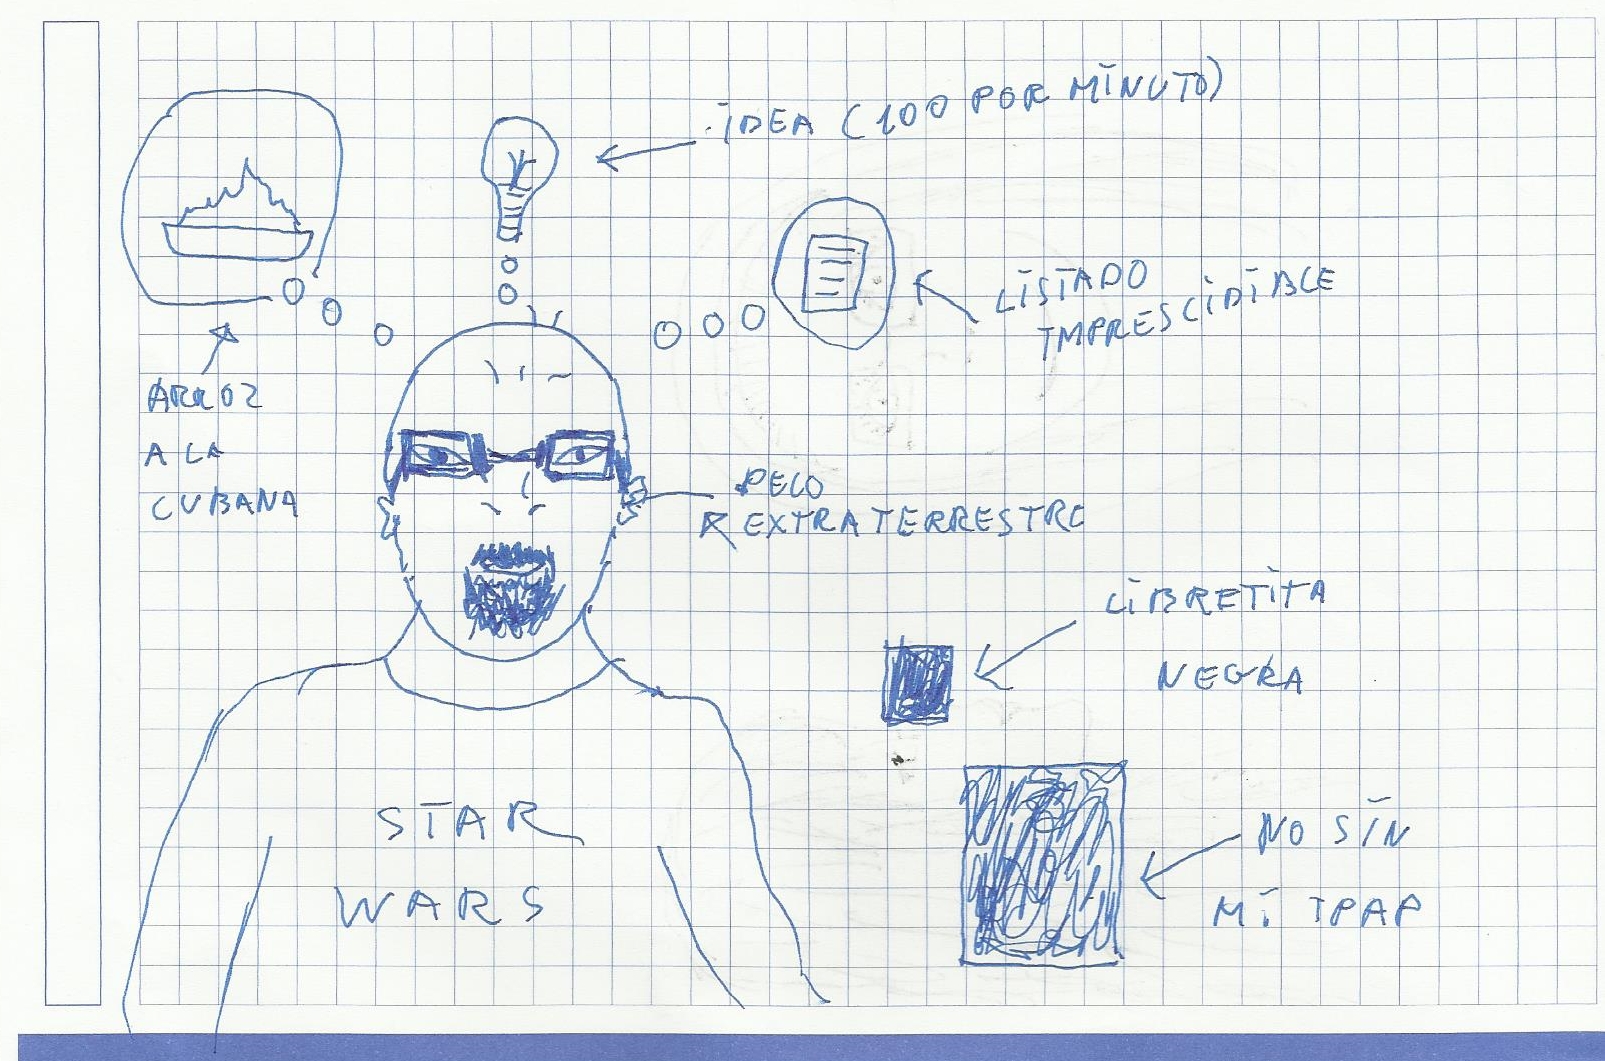 IDEA (100 POR MINUTO)
LISTADO
IMPRESCIDIBLE
ARROZ
A LA
CUBANA
PELO
EXTRATERRESTRE
LIBRETITA
NEGRA
STAR
WARS
NO SIN
MI IPAP